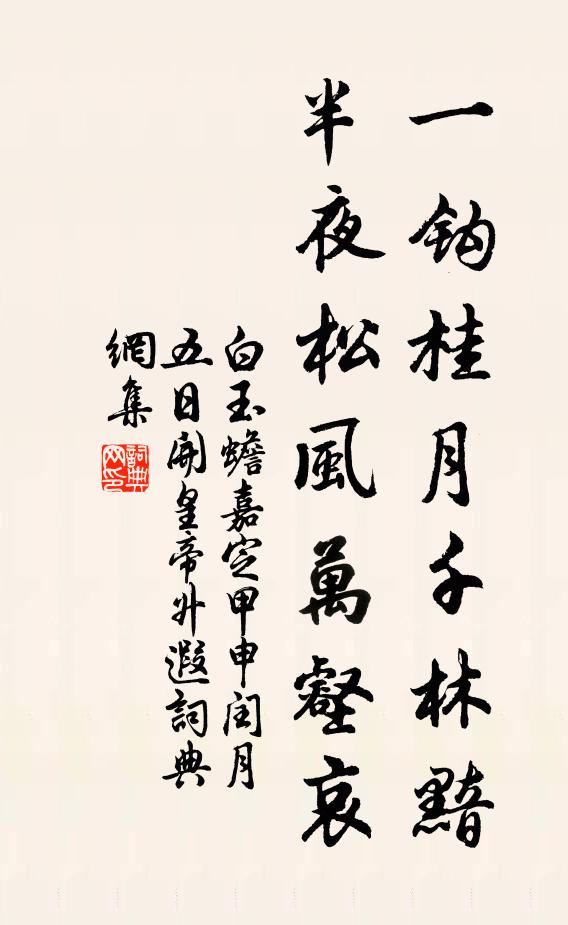 一鈎桂月千林黯
半夜松風萬壑哀
白玉蟾嘉定甲申閏月
五日聞皇帝升遐詞典
網集
詞典
網印